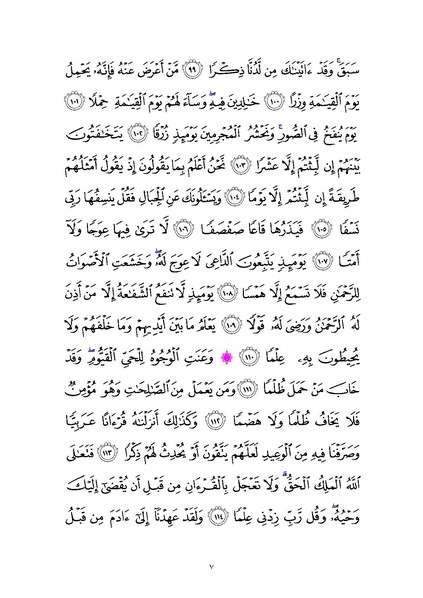 سَبَقَۚ وَقَدۡ ءَاتَيۡنَٰكَ مِن لَّدُنَّا ذِكۡرٗا ٩٩ مَّنۡ أَعۡرَضَ عَنۡهُ فَإِنَّهُۥ يَحۡمِلُ
يَوۡمَ ٱلۡقِيَٰمَةِ وِزۡرًا ١٠٠ خَٰلِدِينَ فِيهِۖ وَسَآءَ لَهُمۡ يَوۡمَ ٱلۡقِيَٰمَةِ حِمۡلٗا ١٠١
يَوۡمَ يُنفَخُ فِي ٱلصُّورِۚ وَنَحۡشُرُ ٱلۡمُجۡرِمِينَ يَوۡمَئِذٖ زُرۡقٗا ١٠٢ يَتَخَٰفَتُونَ
بَيۡنَهُمۡ إِن لَّبِثۡتُمۡ إِلَّا عَشۡرٗا ١٠٣ نَّحۡنُ أَعۡلَمُ بِمَا يَقُولُونَ إِذۡ يَقُولُ أَمۡثَلُهُمۡ
طَرِيقَةً إِن لَّبِثۡتُمۡ إِلَّا يَوۡمٗا ١٠٤ وَيَسۡـَٔلُونَكَ عَنِ ٱلۡجِبَالِ فَقُلۡ يَنسِفُهَا رَبِّي
نَسۡفٗا ١٠٥ فَيَذَرُهَا قَاعٗا صَفۡصَفٗا ١٠٦ لَّا تَرَىٰ فِيهَا عِوَجٗا وَلَآ
أَمۡتٗا ١٠٧ يَوۡمَئِذٖ يَتَّبِعُونَ ٱلدَّاعِيَ لَا عِوَجَ لَهُۥۖ وَخَشَعَتِ ٱلۡأَصۡوَاتُ
لِلرَّحۡمَٰنِ فَلَا تَسۡمَعُ إِلَّا هَمۡسٗا ١٠٨ يَوۡمَئِذٖ لَّا تَنفَعُ ٱلشَّفَٰعَةُ إِلَّا مَنۡ أَذِنَ
لَهُ ٱلرَّحۡمَٰنُ وَرَضِيَ لَهُۥ قَوۡلٗا ١٠٩ يَعۡلَمُ مَا بَيۡنَ أَيۡدِيهِمۡ وَمَا خَلۡفَهُمۡ وَلَا
يُحِيطُونَ بِهِۦ عِلۡمٗا ١١٠ ۞ وَعَنَتِ ٱلۡوُجُوهُ لِلۡحَيِّ ٱلۡقَيُّومِۖ وَقَدۡ
خَابَ مَنۡ حَمَلَ ظُلۡمٗا ١١١ وَمَن يَعۡمَلۡ مِنَ ٱلصَّٰلِحَٰتِ وَهُوَ مُؤۡمِنٞ
فَلَا يَخَافُ ظُلۡمٗا وَلَا هَضۡمٗا ١١٢ وَكَذَٰلِكَ أَنزَلۡنَٰهُ قُرۡءَانًا عَرَبِيّٗا
وَصَرَّفۡنَا فِيهِ مِنَ ٱلۡوَعِيدِ لَعَلَّهُمۡ يَتَّقُونَ أَوۡ يُحۡدِثُ لَهُمۡ ذِكۡرٗا ١١٣ فَتَعَٰلَى
ٱللَّهُ ٱلۡمَلِكُ ٱلۡحَقُّۗ وَلَا تَعۡجَلۡ بِٱلۡقُرۡءَانِ مِن قَبۡلِ أَن يُقۡضَىٰٓ إِلَيۡكَ
وَحۡيُهُۥۖ وَقُل رَّبِّ زِدۡنِي عِلۡمٗا ١١٤ وَلَقَدۡ عَهِدۡنَآ إِلَىٰٓ ءَادَمَ مِن قَبۡلُ
٧